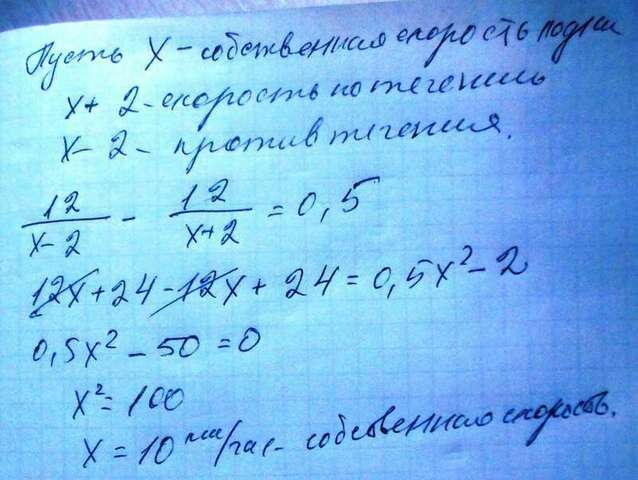 Пусть X - собственная скорость лодки
x + 2 - скорость по течению
x - 2 - против течения.
12/(x-2) - 12/(x+2) = 0,5
12x + 24 - 12x + 24 = 0,5x² - 2
0,5x² - 50 = 0
x² = 100
x = 10 км/час - собственная скорость.